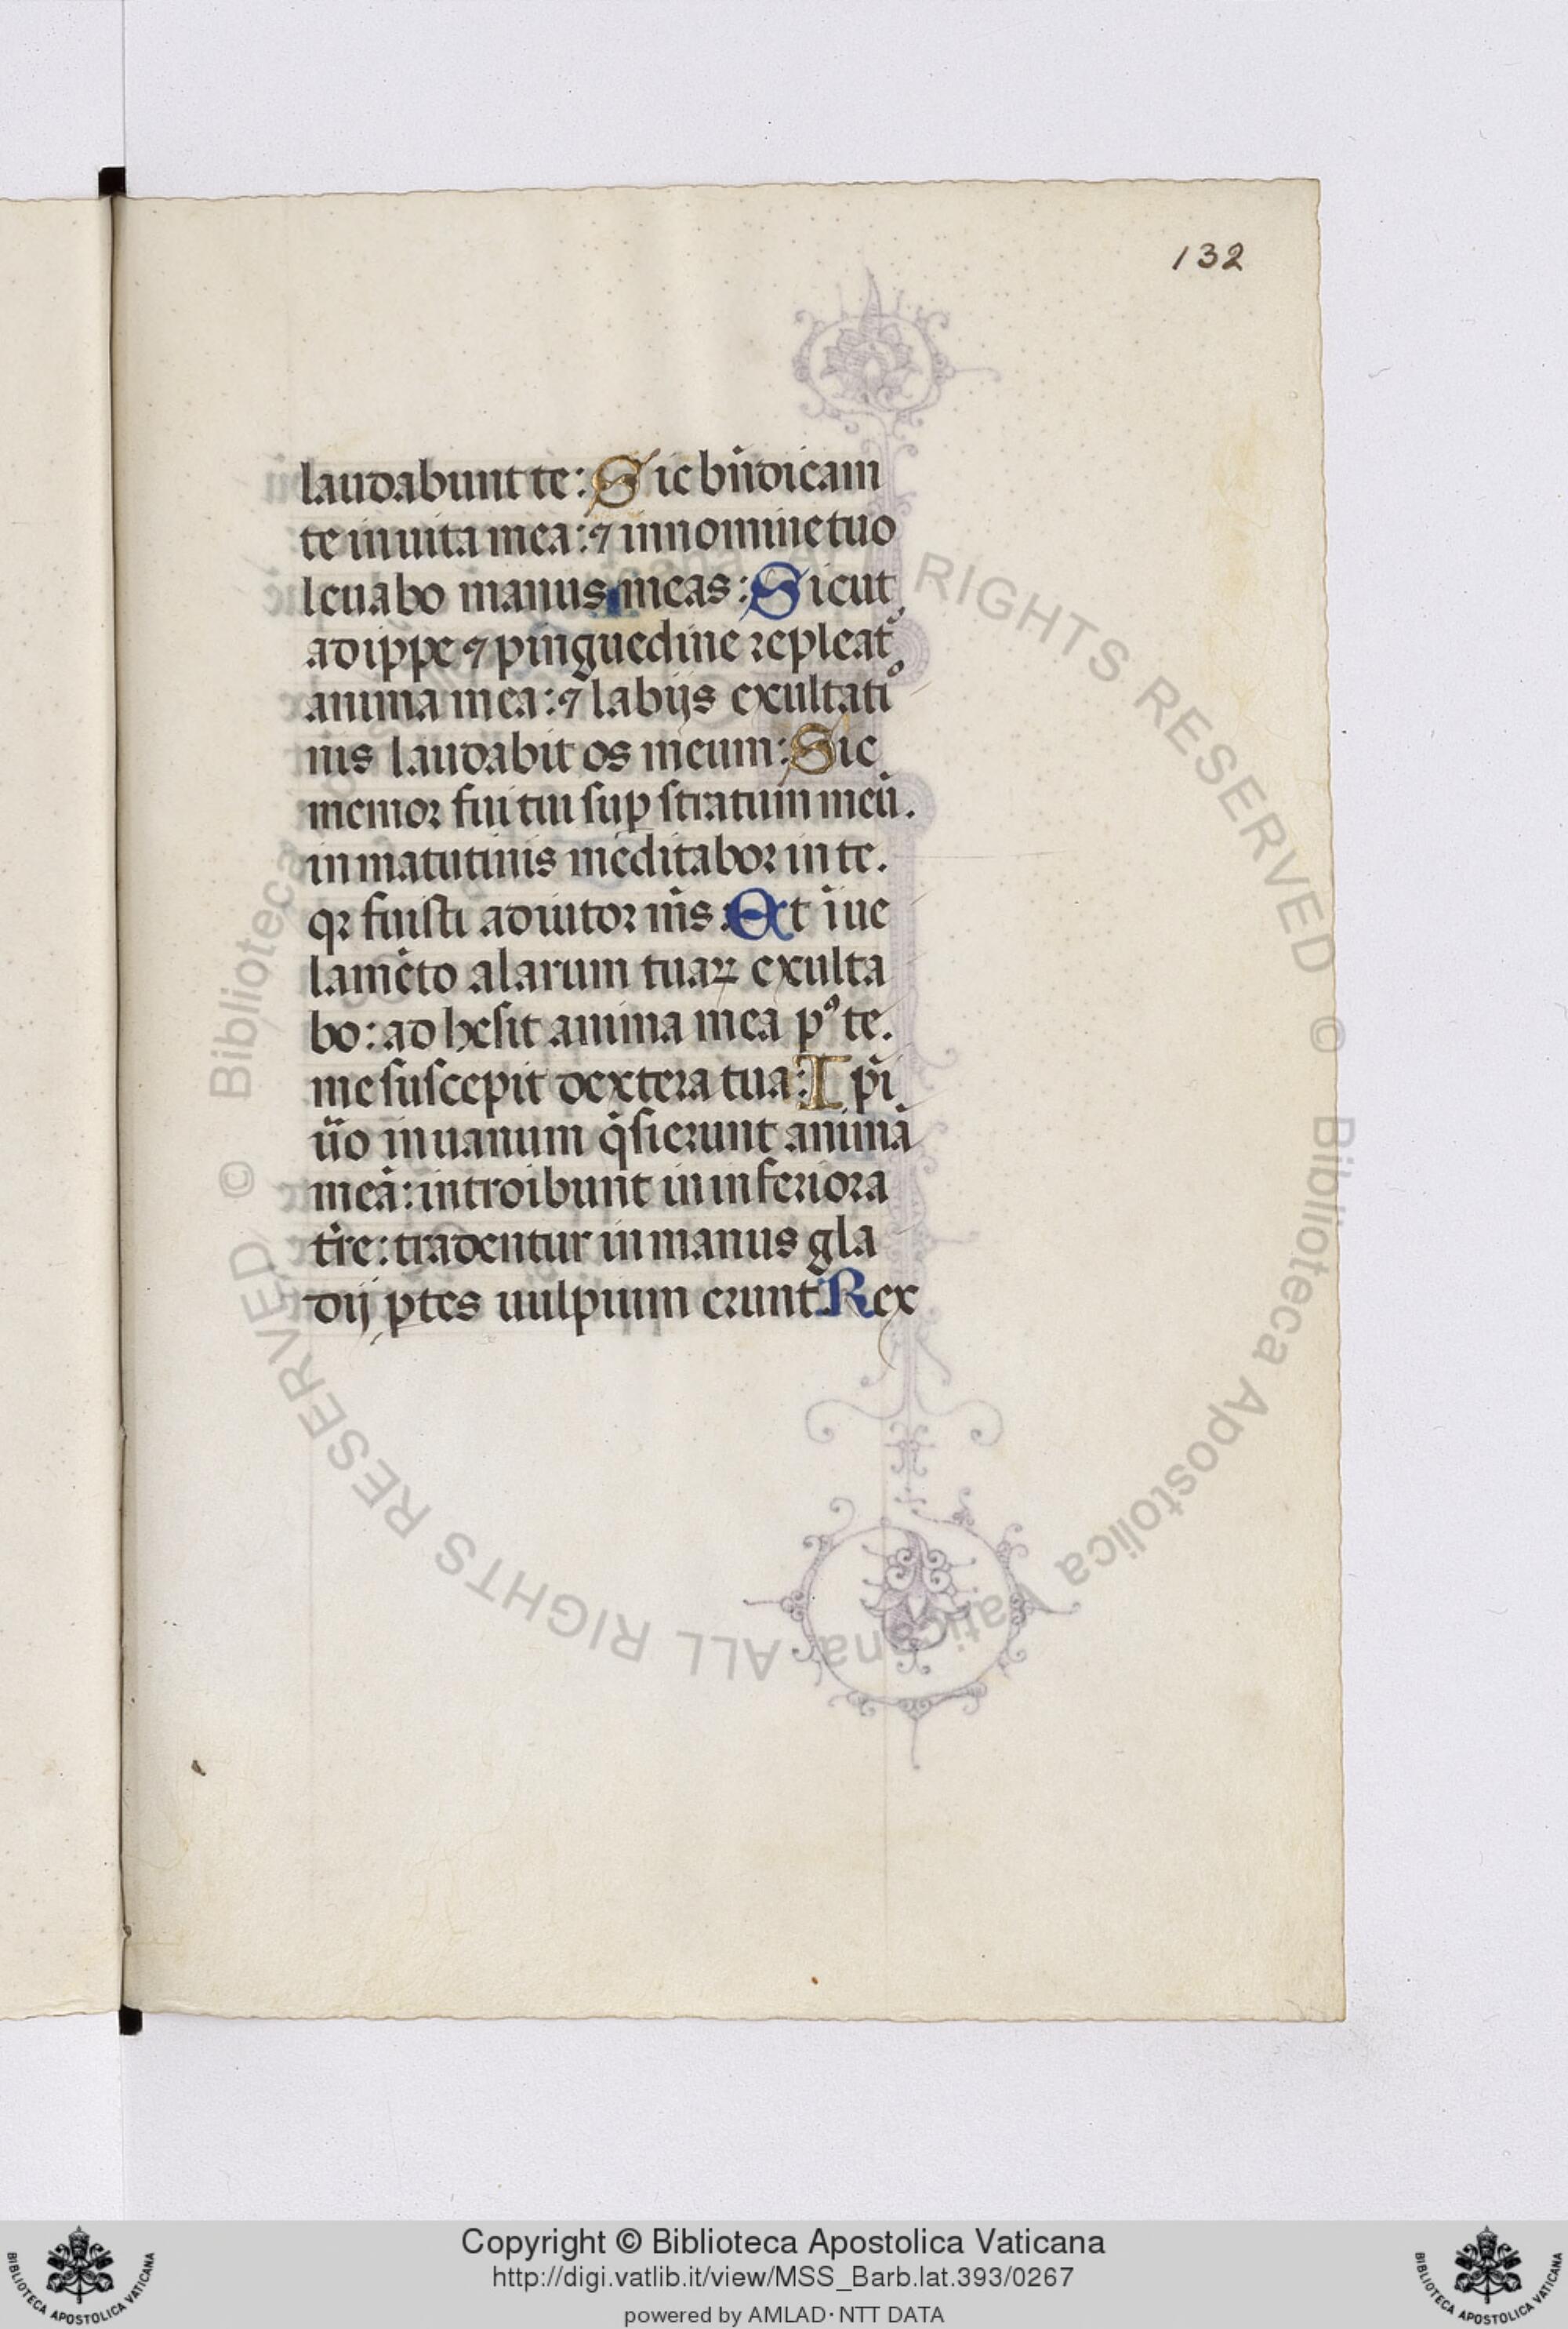 132
laudabunt te: Sic bn̄dicam
te in uita mea: ⁊ in nomine tuo
leuabo manus meas: Sicut
adippe ⁊ pinguedine repleat᷑
anima mea: ⁊ labijs exultatiꝰ
nis laudabit os meum: Sic
memor fui tui suꝑ stratum meū.
in matutinis meditabor in te.
qꝛ fuisti adiutor m̄s: Et ī ue
lamēto alarum tuaꝝ exulta
bo: ad hesit anima mea pꝰ te.
me suscepit dextera tua: Ip̄i
ūo in uanum q̄sierunt animā
meā: introibunt in inferiora
tr̄e: tradentur in manus gla
dij ꝑtes uulpium erunt: Rex
© Biblioteca Apostolica Vaticana ALL RIGHTS RESERVED
© Biblioteca Apostolica Vaticana ALL RIGHTS RESERVED
Copyright © Biblioteca Apostolica Vaticana
http://digi.vatlib.it/view/MSS_Barb.lat.393/0267
powered by AMLAD·NTT DATA
BIBLIOTECA APOSTOLICA VATICANA
BIBLIOTECA APOSTOLICA VATICANA